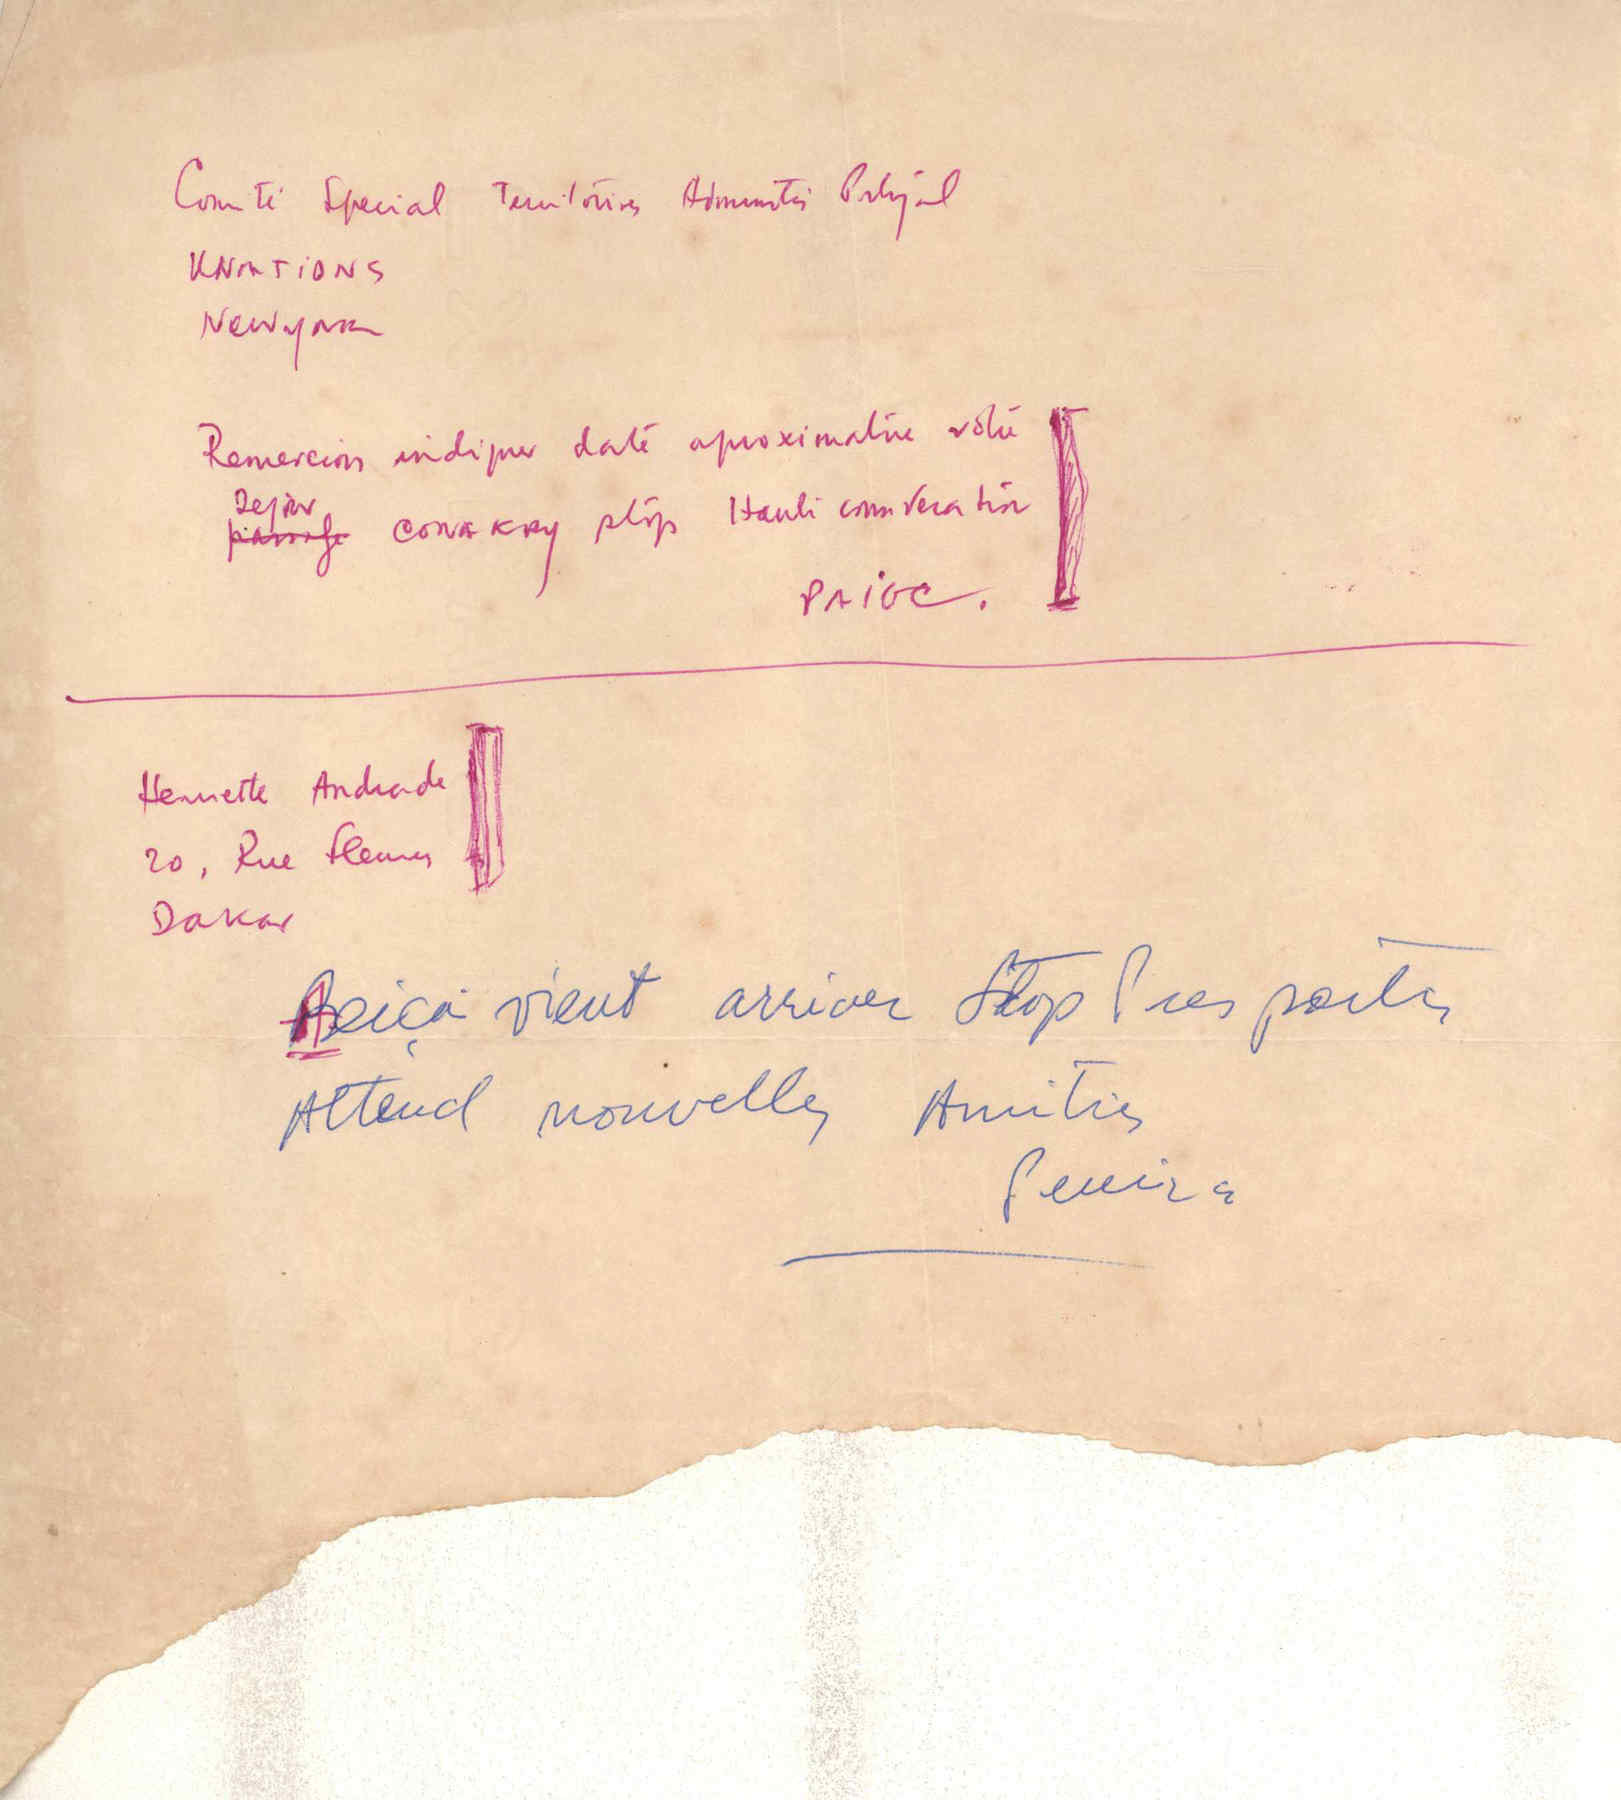 Comité Special Territoires Administrés Portugal
UNATIONS
Newyork
Remercions indiquer date aproximative votre
sejour
passage CONAKRY stop Haute consideration
PAIGC.
Henriette Andrade
20, Rue Fleurus
Dakar
vient arriver Stop Pres partir
Attend nouvelles Amitiés
Pereira